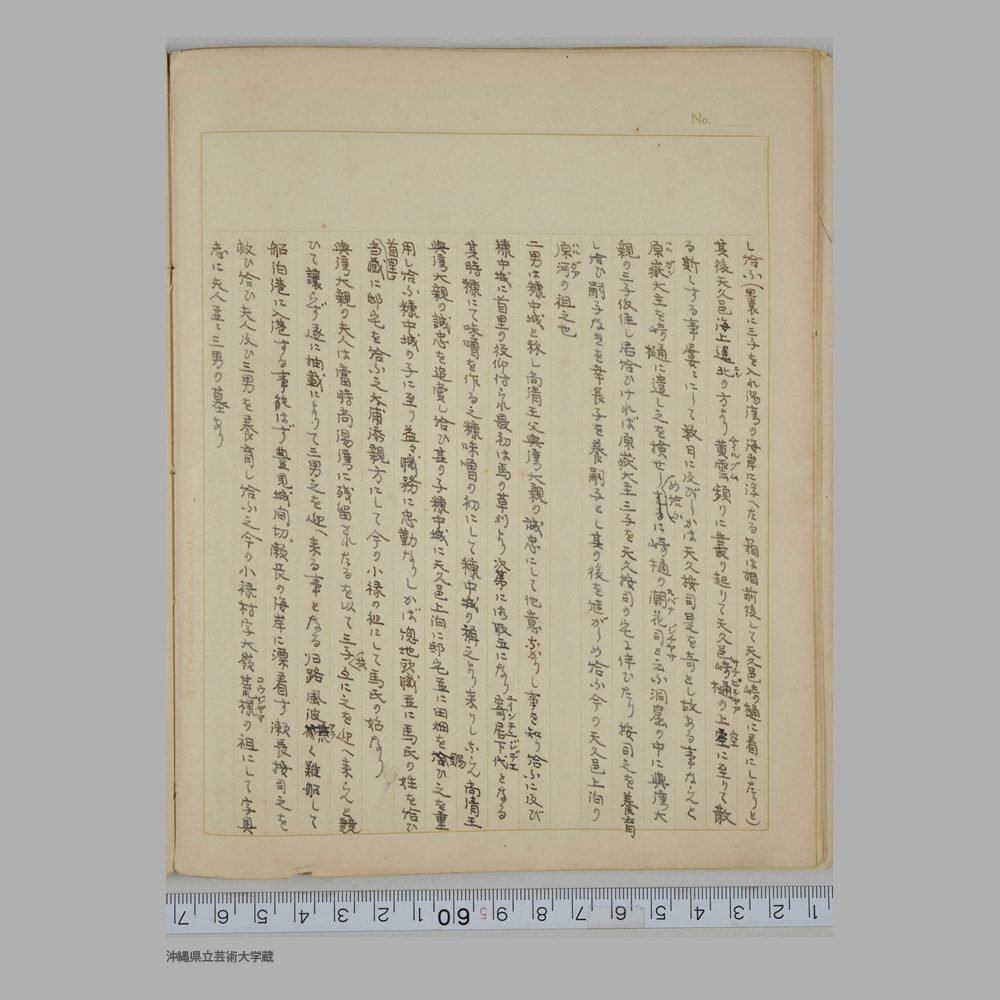 No.
し給ふ(裏に三子を入れ湯湾の海岸に浮へたる箱は相前後して天久邑崎樋に着にしたりと)
其後天久邑海上遥北の方より黄雲頻りに叢り起りて天久邑崎樋の上空に至りて散
る斯くする事屡々にして数日に及びしかは天久按司是を奇とし故ある事ならんと
原嶽大主を崎樋に遣し之を検せしめ給ふに崎樋の潮花司と云ふ洞窟の中に與湾大
親の三子仮住し居給ひければ原嶽大主三子を天久按司の宅に伴ひたり按司之を養育
し給ひ嗣子なきを幸長子を養嗣子とし其の後を継がしめ給ふ今の天久邑上泊の
原河の祖之也
二男は糠中城と称し尚清王父與湾大親の誠忠にして他意なかりし事を知り給ふに及び
糠中城に首里の役仰付られ最初は馬の草刈より次第に御取立になり寄居下代となる
其時糠にて味噌を作る之糠味噌の初にして糠中城の称之より来りしならん尚清王
與湾大親の誠忠を追賞し給ひ其の子糠中城に天久邑上泊に邸宅並に田畑を賜ひ之を重
用し給ふ糠中城の子に至り益々職務に忠勤なりしかば惣地頭職並に馬氏の姓を給ひ
首里当蔵に邸宅を給ふ之大浦添親方にして今の小禄の祖にして馬氏の始なり
與湾大親の夫人は當時尚湯湾に残留されたるを以て三子(共)互に之を迎へ来らんと競
ひて譲らず遂に抽籤によりて三男之を迎へ来る事となる帰路風波荒く難船して
船泊港に入港する事能はず豊見城間切瀬長の海岸に漂着す瀬長按司之を
救ひ給ひ夫人及び三男を養育し給ふ之今の小禄村字大嶺荒様の祖にして字具
志に夫人並に三男の墓あり
沖縄県立芸術大学蔵